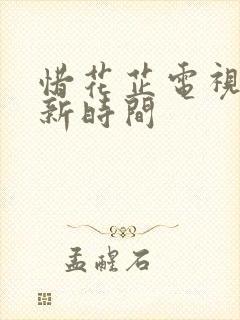 惜花芷電視
新時間
孟醒石